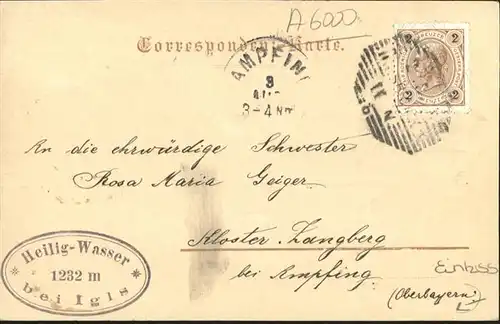 A6000
Correspondenz-Karte.
AMPFING
3
AUG
3-4 NM
2 KREUZER 2
2 2
An die ehrwürdige Schwester
Rosa Maria Geiger
Kloster Zangberg
bei Ampfing
(Oberbayern)
Heilig-Wasser
1232 m
bei Igls